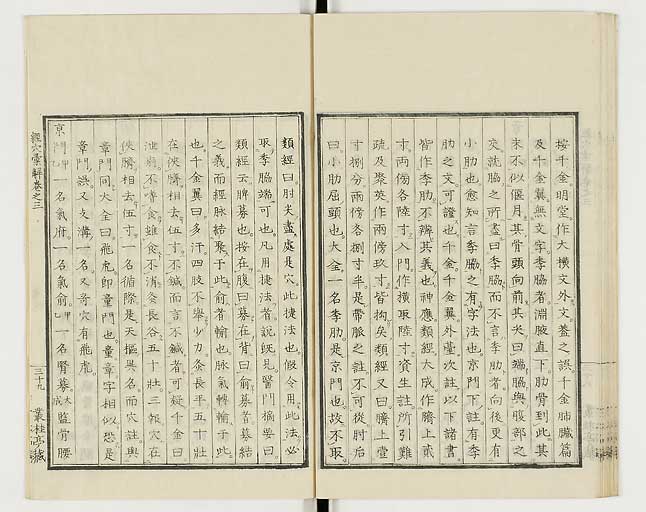 按千金明堂作大橫文外文蓋之誤千金肺臟篇
及千金翼無文字季脇者淵腋直下肋骨到此其
末不似偃月其骨頭向前其尖曰端脇與腹部之
交就脇之所盡曰季脇而不言季肋者向後更有
小肋也愈知言季脇之有字法也京門下註有季
肋之文可證也千金千金翼外臺次註以下諸書
皆作季肋不辨其義也神應類經大成作臍上貳
寸兩傍各陸寸入門作橫取陸寸資生註所引難
疏及聚英作兩傍玖寸皆拘矣類經又曰臍上壹
寸捌分兩傍各捌寸半是帶脈之註不可從肘后
曰小肋屈頭也大全一名季肋是京門也故不取
類經曰肘尖盡處是穴此捷法也假令用此法必
取季脇端可也凡用捷法者說既見醫門摘要曰
類經云脾募也按在腹曰募在背曰俞募者募結
之義而經脈結聚于此俞者輸也脈氣轉輸于此
也千金翼曰多汗四肢不舉少力灸長平五十壯
在俠臍相去五寸不鍼而言不鍼者可疑千金曰
治
不嗜食雖食不消灸長谷五十壯三報穴在
俠臍相去伍寸一名循際是天樞異名而穴註與
章門同大全曰飛虎即章門也童章字相似恐是
章門誤又支溝一名又奇穴有飛虎
京門甲乙一名氣府一名氣俞甲乙一名腎募大成監骨腰
經穴彙解卷之三
三十九
叢桂亭藏